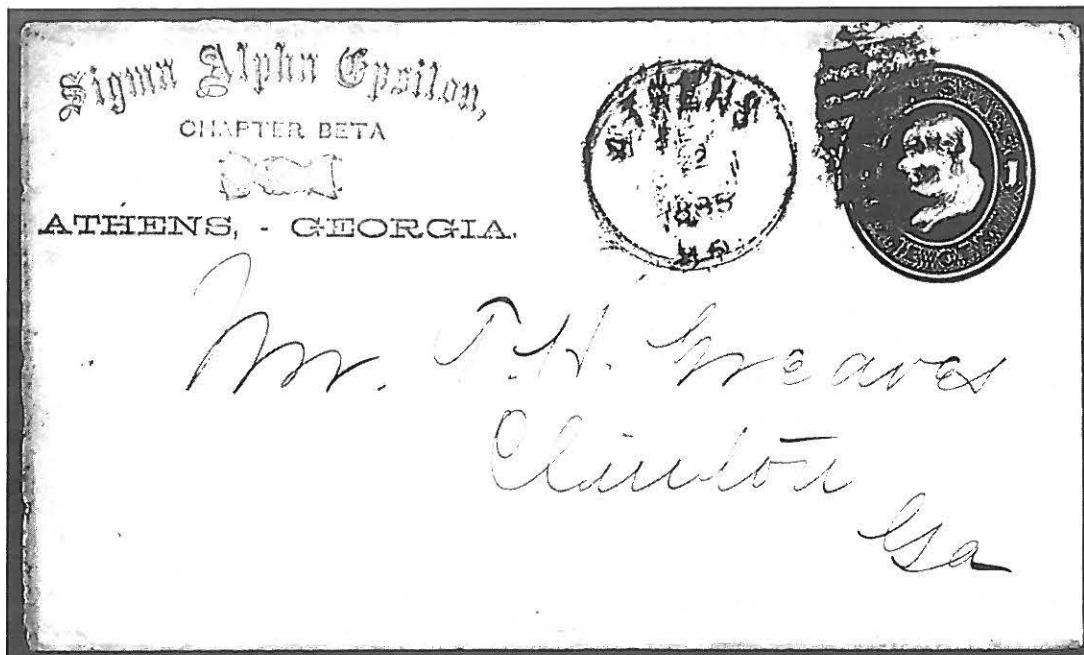 Sigma Alpha Epsilon,
CHAPTER BETA
ATHENS, - GEORGIA.
ATHENS
2
1885
1
Mr. T. H. Greaves
Clinton
Ga